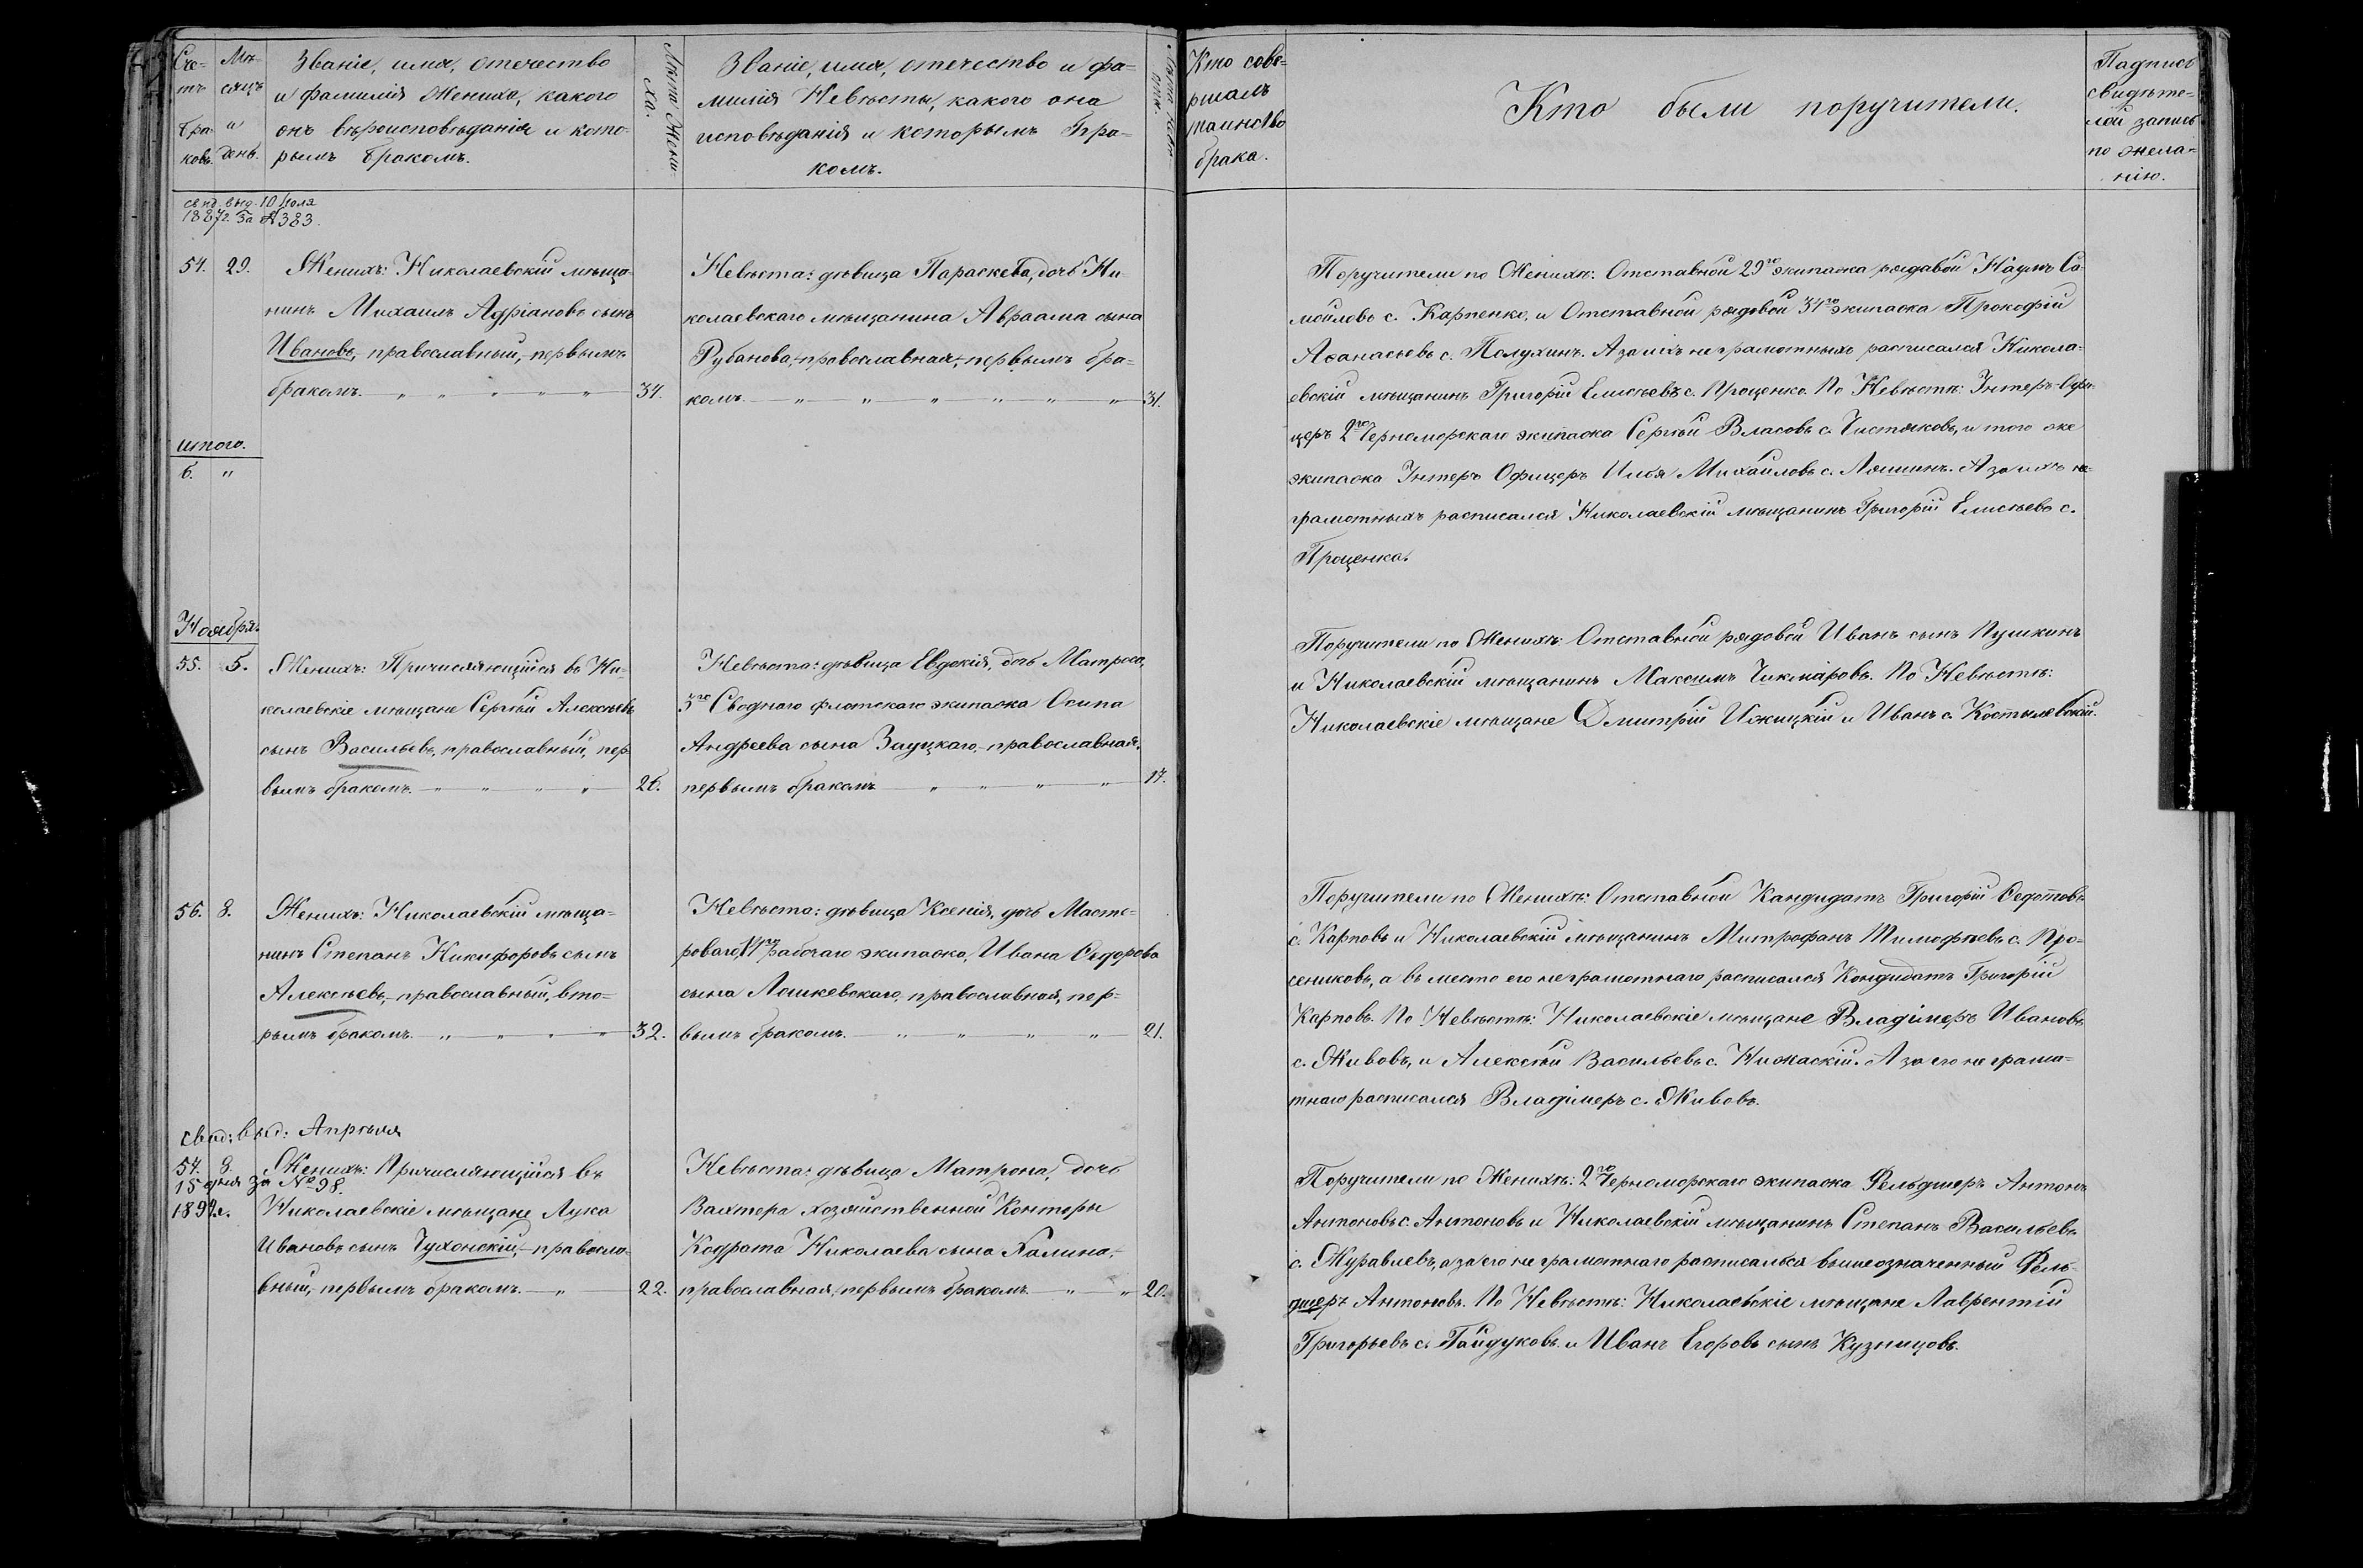 Сче-
тъ
бра-
ковъ.
Мѣ-
сяцъ
и
день.
Званіе, имя, отечество
и фамилія Жениха, какого
онъ вѣроисповѣданія и кото-
рымъ бракомъ.
Лѣта Жени-
ха.
Званіе, имя, отечество и фа-
милія Невѣсты, какого она
исповѣданія и которымъ бра-
комъ.
Кто сове-
ршалъ
таинство
брака.
Кто были поручители.
Падпись
свидѣте-
лей запись
по жела-
нію.
свид. выд. 10 Іюля
1887г. за №383.
54. 29. Женихъ: Николаевскій мѣща-
нинъ Михаилъ Адріановъ сынъ
Ивановъ, православный, первымъ
бракомъ. 34.
Невѣста: дѣвица Параскева, дочь Ни-
колаевскаго мѣщанина Авраама сына
Рубанова, православная, первымъ бра-
комъ. 31.
Поручители по Женихѣ: Отставной 29го экипажа рядавой Наумъ Са-
мойловъ с. Карпенко, и Отставной рядовой 31го экипажа Прокофій
Аѳанасьевъ с. Полухинъ. А за ихъ неграмотныхъ расписался Никола-
евскій мѣщанинъ Григорій Елисѣевъ с. Проценко. По Невѣстѣ: Унтеръ-Офи-
церъ 2го Черноморскаго экипажа Сергѣй Власовъ с. Чистяковъ, и того же
экипажа Унтеръ Офицеръ Илья Михайловъ с. Ляшинъ. А за ихъ не-
грамотныхъ расписался Николаевскій мѣщанинъ Григорій Елисѣевъ с.
Проценка.
итого.
6. "
Ноября.
55. 5. Женихъ: Причисляющійся въ Ни-
колаевскіе мѣщане Сергѣй Алексѣевъ
сынъ Васильевъ, православный, пер-
вымъ бракомъ. 26.
Невѣста: дѣвица Евдокія, дочь Матроса,
3го Своднаго флотскаго экипажа Осипа
Андреева сына Зауцкаго, православная,
первымъ бракомъ 17.
Поручители по Женихѣ: Отставной рядовой Иванъ сынъ Пушкинъ
и Николаевскій мѣщанинъ Максимъ Чикмаровъ. По Невѣстѣ:
Николаевскіе мѣщане Дмитрій Ижицкій и Иванъ с. Костылевскій.
56. 8. Женихъ: Николаевскій мѣща-
нинъ Степанъ Никифоровъ сынъ
Алексѣевъ, православный, вто-
рымъ бракомъ. 32.
Невѣста: дѣвица Ксенія, дочь Масте-
роваго, рабочаго экипажа, Ивана Ѳедорова
сына Лошкевскаго, православная, пер-
вымъ бракомъ. 21.
Поручители по Женихѣ: Отставной Кандидатъ Григорій Ѳедотовъ
с. Карповъ и Николаевскій мѣщанинъ Митрофанъ Тимофѣевъ с. Про-
сениковъ, а въ место его неграмотнаго расписался Кондидатъ Григорій
Карповъ. По Невѣстѣ: Николаевскіе мѣщане Владімеръ Ивановъ
с. Живовъ, и Алексѣй Васильевъ с. Нижаскій. А за его не грамо-
тнаго расписался Владімеръ с. Живовъ.
свид: выд: Апрѣля
57. 8. Женихъ: Причисляющійся въ
15 дня за №98.
189 г. Николаевскіе мѣщане Лука
Ивановъ сынъ Чухонскій, правосла-
вный, первымъ бракомъ. 22.
Невѣста: дѣвица Матрона, дочь
Вахтера хозяйственной Конторы
Кодрата Николаева сына Халина,
православная, первымъ бракомъ. 20.
Поручители по Женихѣ: 2го Черноморскаго экипажа Фельдшеръ Антонъ
Антоновъ с. Антоновъ и Николаевскій мѣщанинъ Степанъ Васильевъ
с. Журавлевъ, а за его не грамотнаго росписалься вышеозначенный Фель-
дшеръ Антоновъ. По Невѣстѣ: Николаевскіе мѣщане Лаврентій
Григорьевъ с. Гайдуковъ и Иванъ Егоровъ сынъ Кузницовъ.